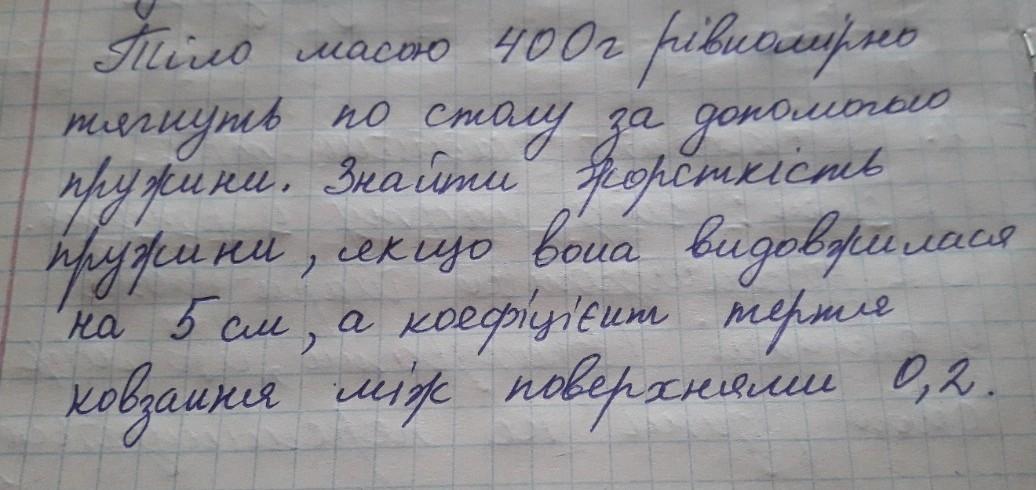 Тіло масою 400г рівномірно
тягнуть по столу за допомогою
пружини. Знайти жорсткість
пружини, якщо вона видовжилася
на 5 см, а коефіцієнт тертя
ковзання між поверхнями 0,2.